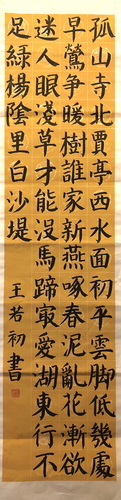 孤山寺北賈亭西水面初平雲脚低幾處
早鶯争暖樹誰家新燕啄春泥亂花漸欲
迷人眼淺草才能沒馬蹄寂愛湖東行不
足綠楊陰里白沙堤
王若初書